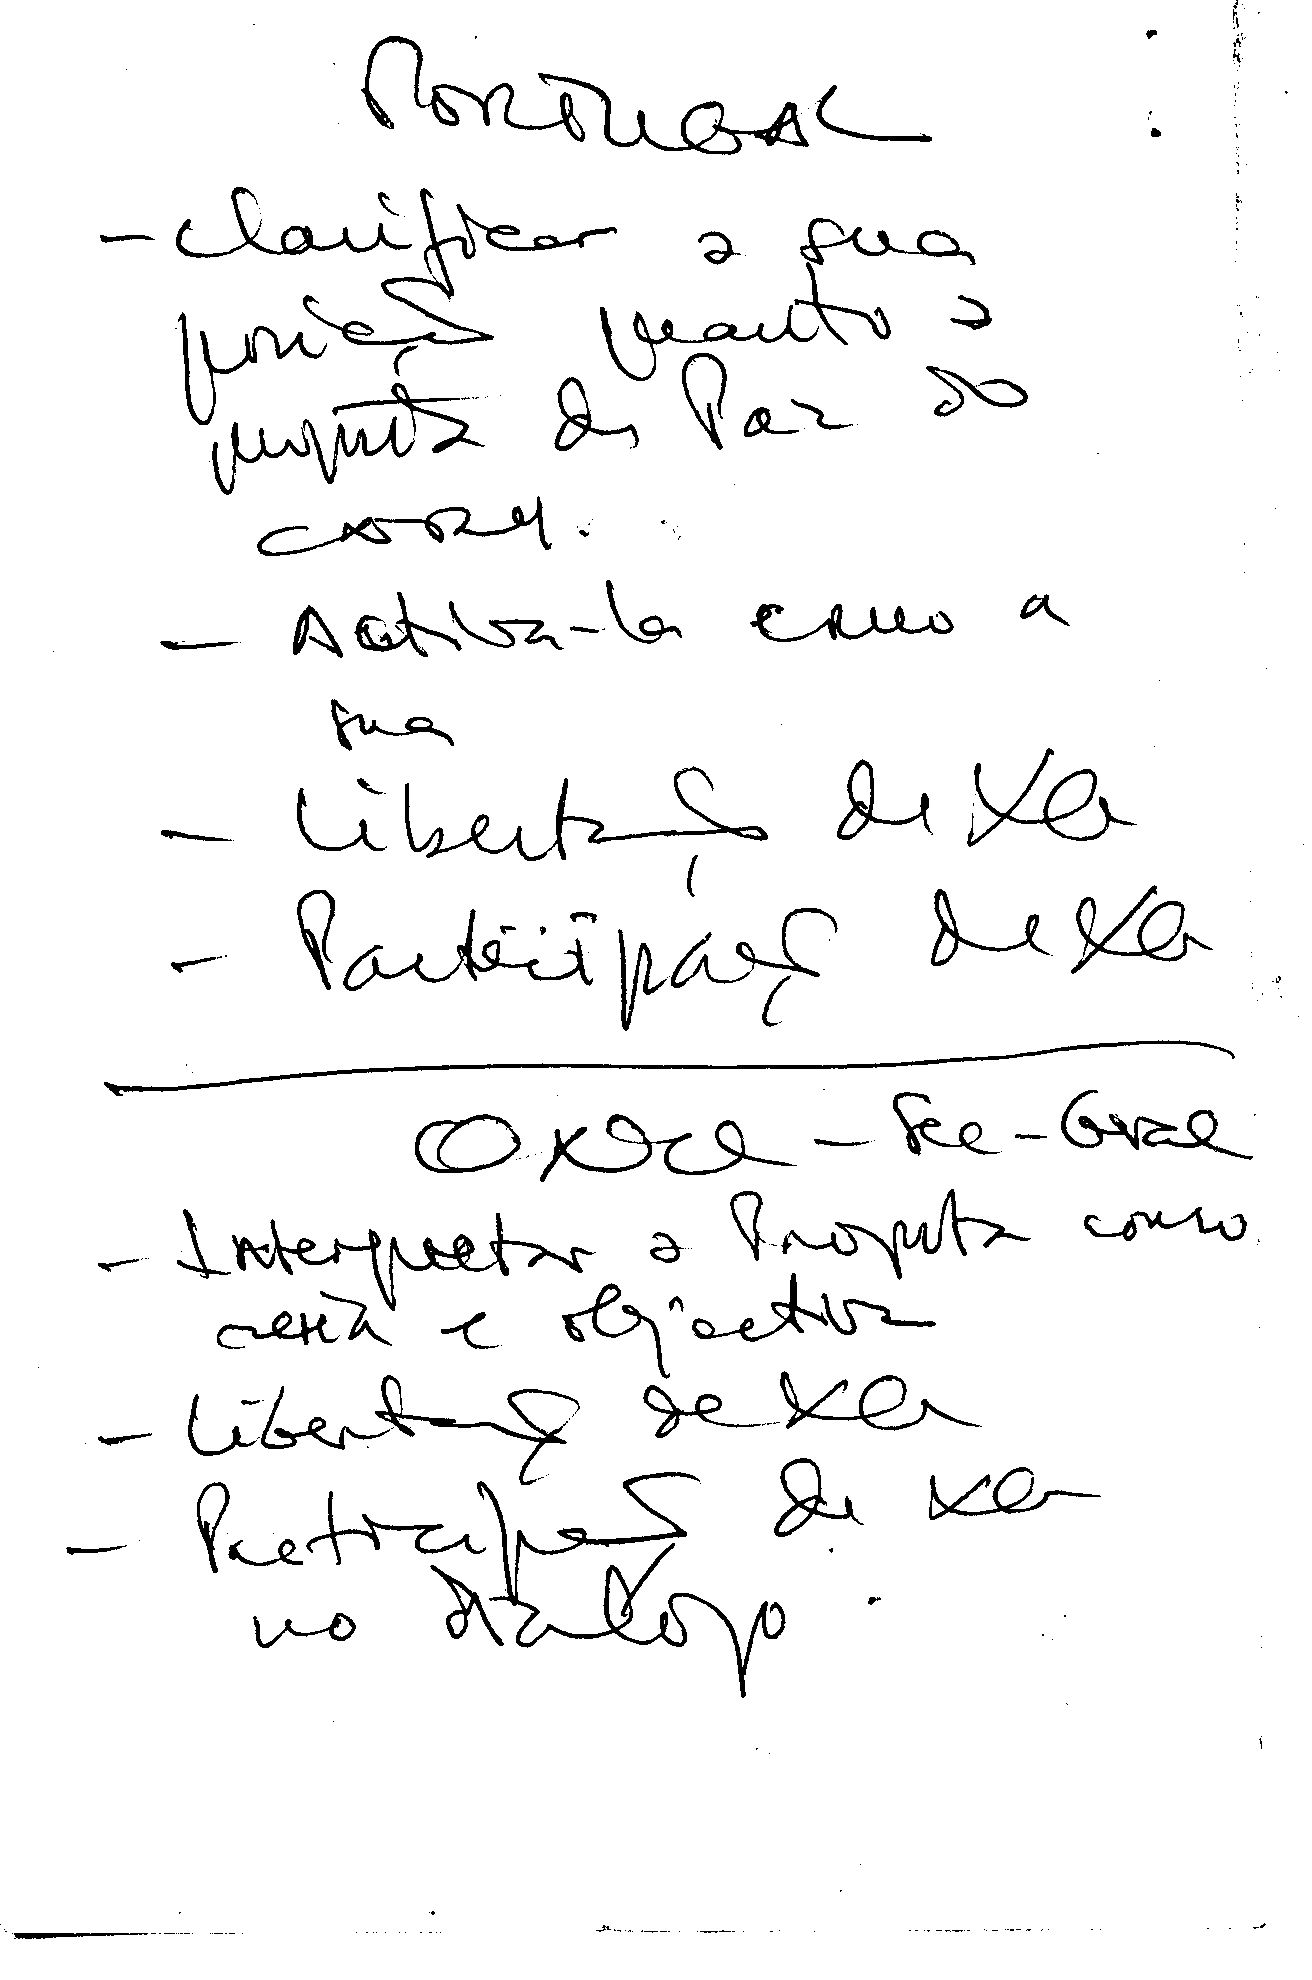 PORTUGAL
- Clarificar a sua
posição quanto a
proposta de Paz do
CNRM.
- Activa-la como a
sua
- Libertação de XG
- Participação de XG
- Sec-Geral
- Interpretar a Proposta como
séria e objectiva
- Libertação de XG
- Participação de XG
no diálogo